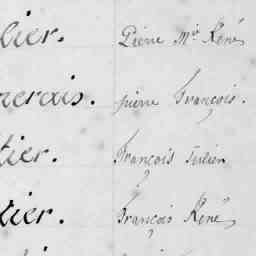 lier. Pierre Mie René
nerais. pierre François.
tier. François Julien
tier. François René